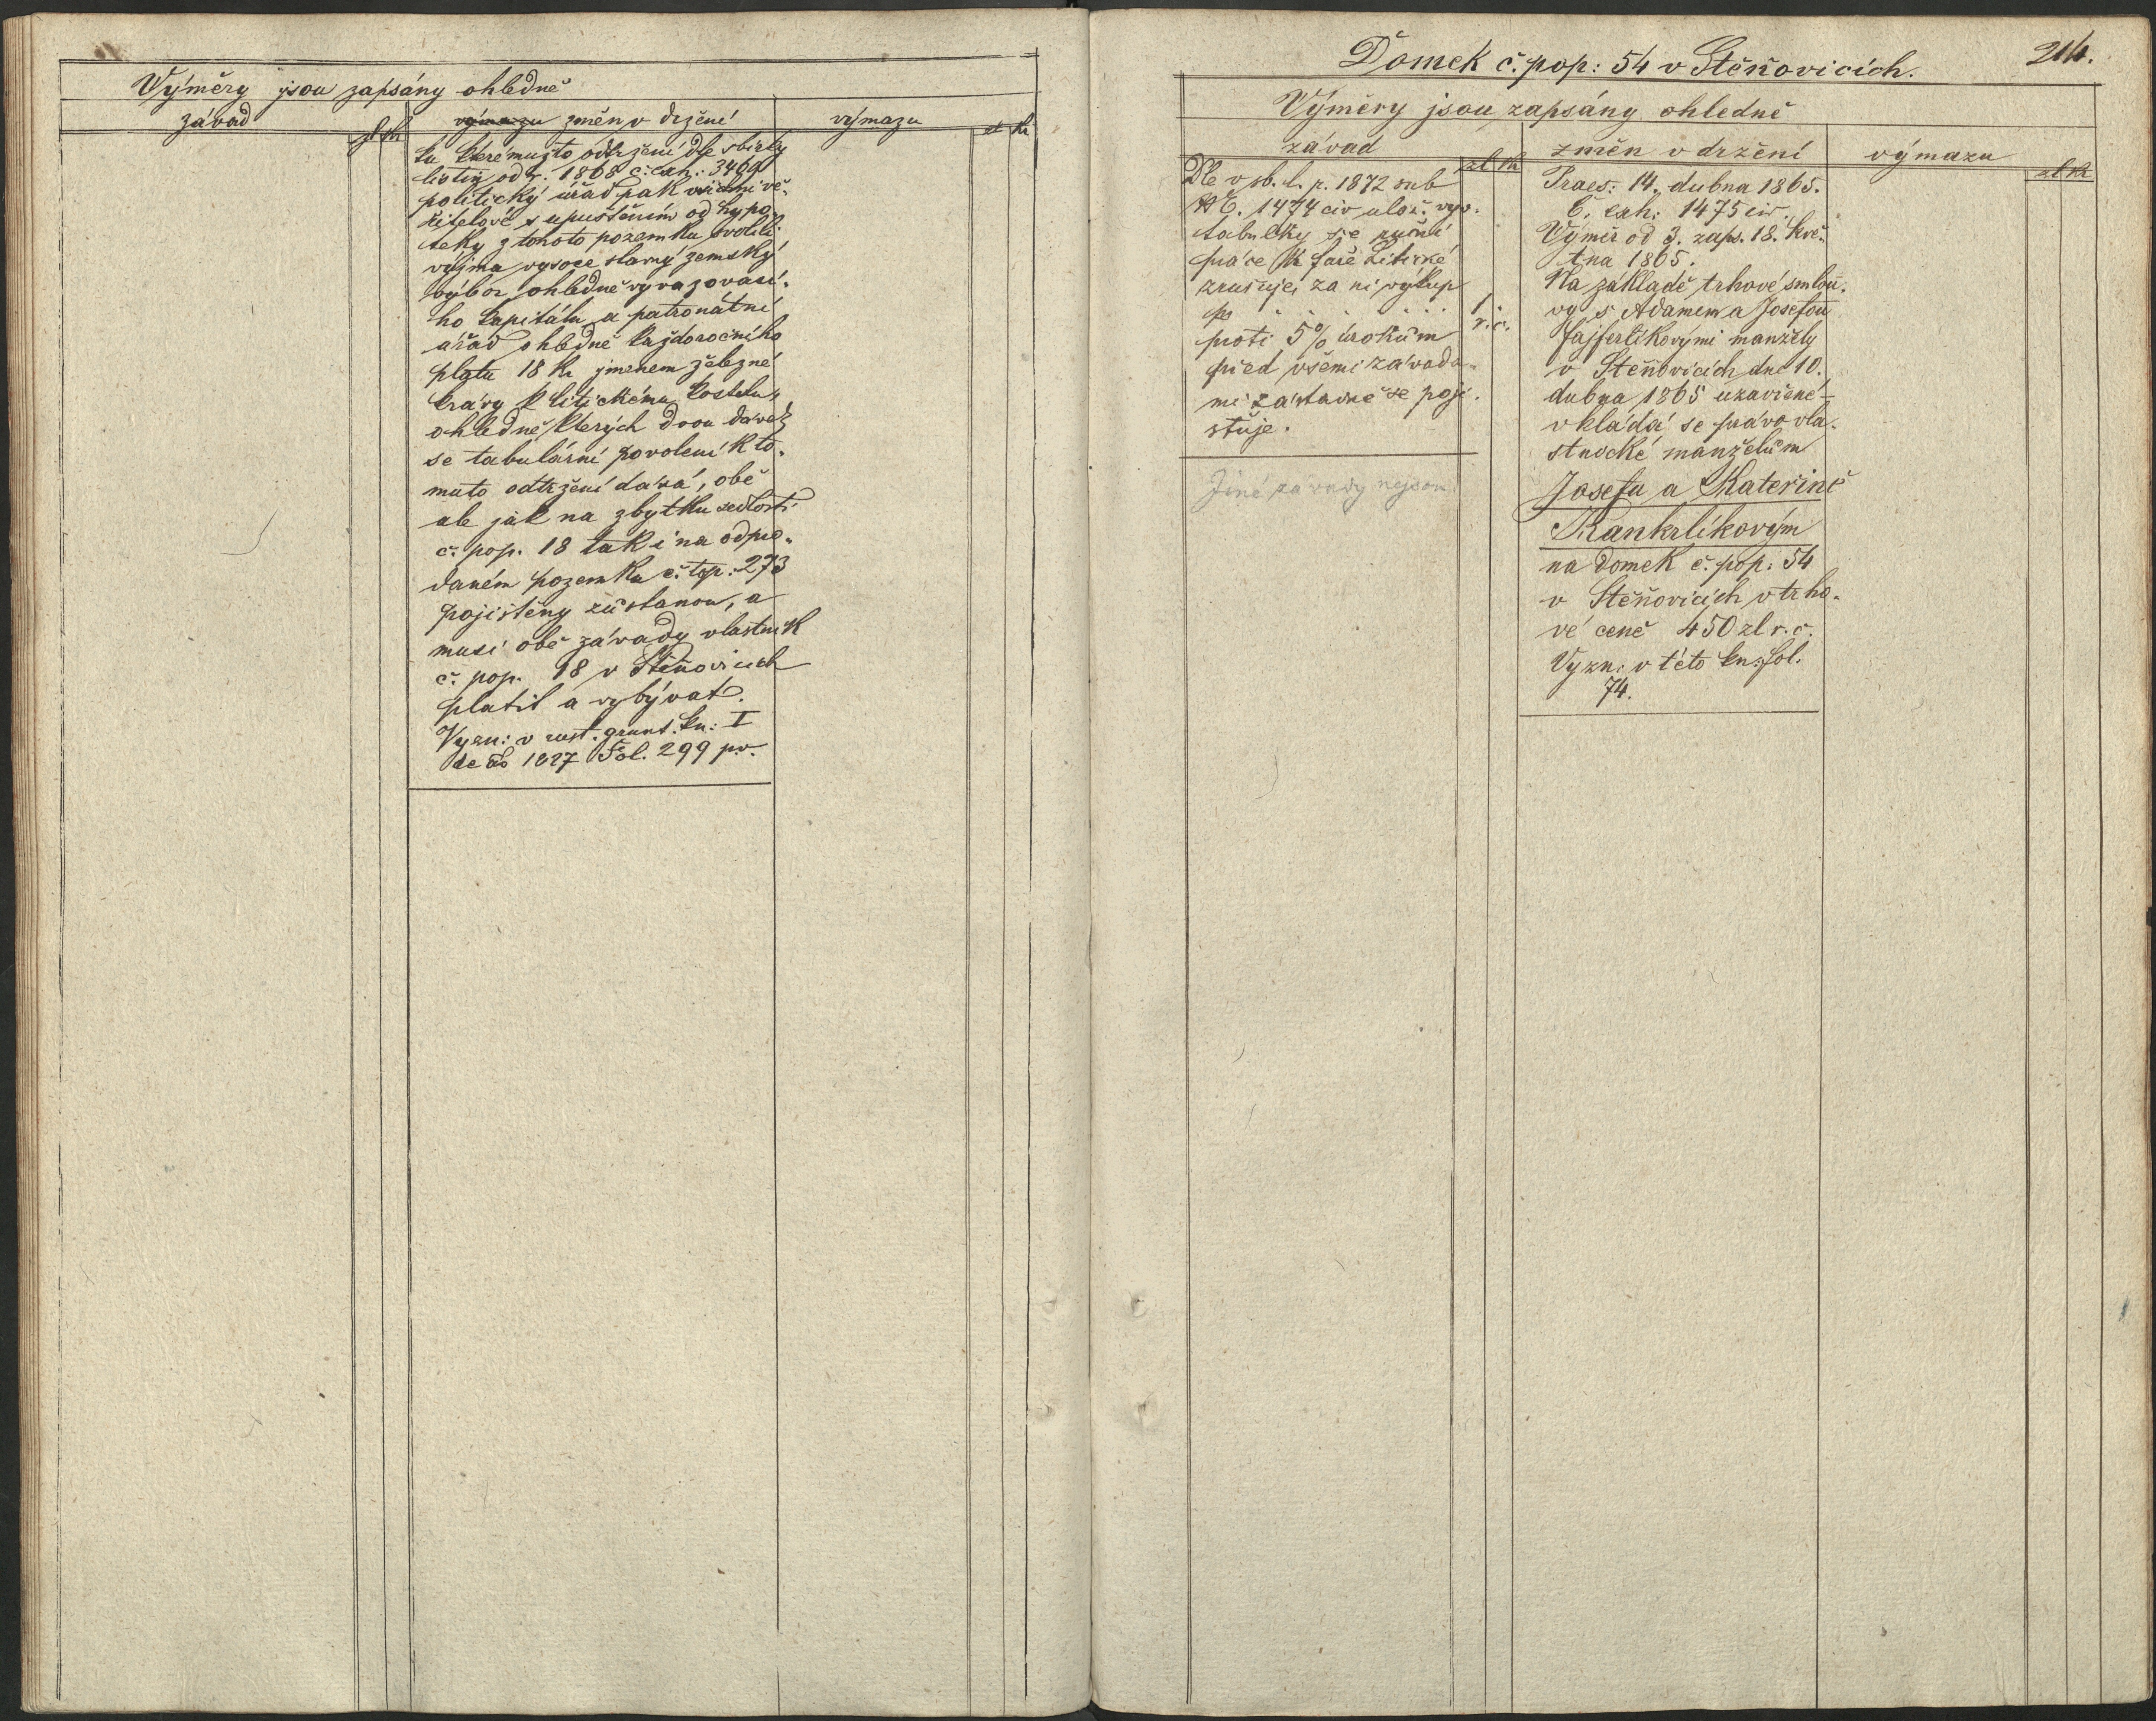 Výměry jsou zapsány ohledně
závad
zl kr
výmazu změn v držení
výmazu
zl kr
ku kterémužto odtržení dle sbírky
listin od r. 1868 č: exh: 3469
politický úřad pak všichni vě-
řitelové s upuštěním od hypo-
teky z tohoto pozemku svolili
vyjma vysoce slavný zemský
výbor ohledně vyvazovací-
ho kapitálu a patronátní
úřad ohledně každoročního
platu 18 kr jmenem železné
krávy k litickému kostelu,
ohledně kterých dvou dávek
se tabulární povolení k to-
muto odtržení dává, obě
ale jak na zbytku sedlosti
č. pop. 18 tak i na odpro-
daném pozemku č: top: 273
pojištěny zůstanou, a
musí obě závady vlastník
č. pop. 18 v Štěňovicích
platit a vybývat.
Vyzn: v rust. grunt. kn: I
de ao 1827 Fol. 299 p.v.
Domek č. pop: 54 v Štěňovicích.
214.
Výměry jsou zapsány ohledně
závad
zl kr
změn v držení
výmazu
zl kr
Dle v sb. l. p. 1872 sub
NE. 1474 civ ulož. vyv.
tabulky se ruční
práce k faře Litické
zrušuje, za ni výkup
po . . . . . . 1 .
r. č.
proti 5% úrokům
před všemi závada-
mi zástavně se poji-
šťuje.
Jiné závady nejsou
Praes: 14. dubna 1865.
Č. exh: 1475 civ.
Výměr od 3. zaps. 18. kvě-
tna 1865.
Na základě trhové smlou-
vy s Adamem a Josefou
Fajfrlíkovými manžely
v Štěňovicích dne 10.
dubna 1865 uzavřené –
vkládá se právo vla-
stnické manželům
Josefu a Kateřině
Rankrlíkovým
na domek č. pop: 54
v Štěňovicích v trho-
vé ceně 450 zl r. č.
Vyzn: v této kn: fol.
74.